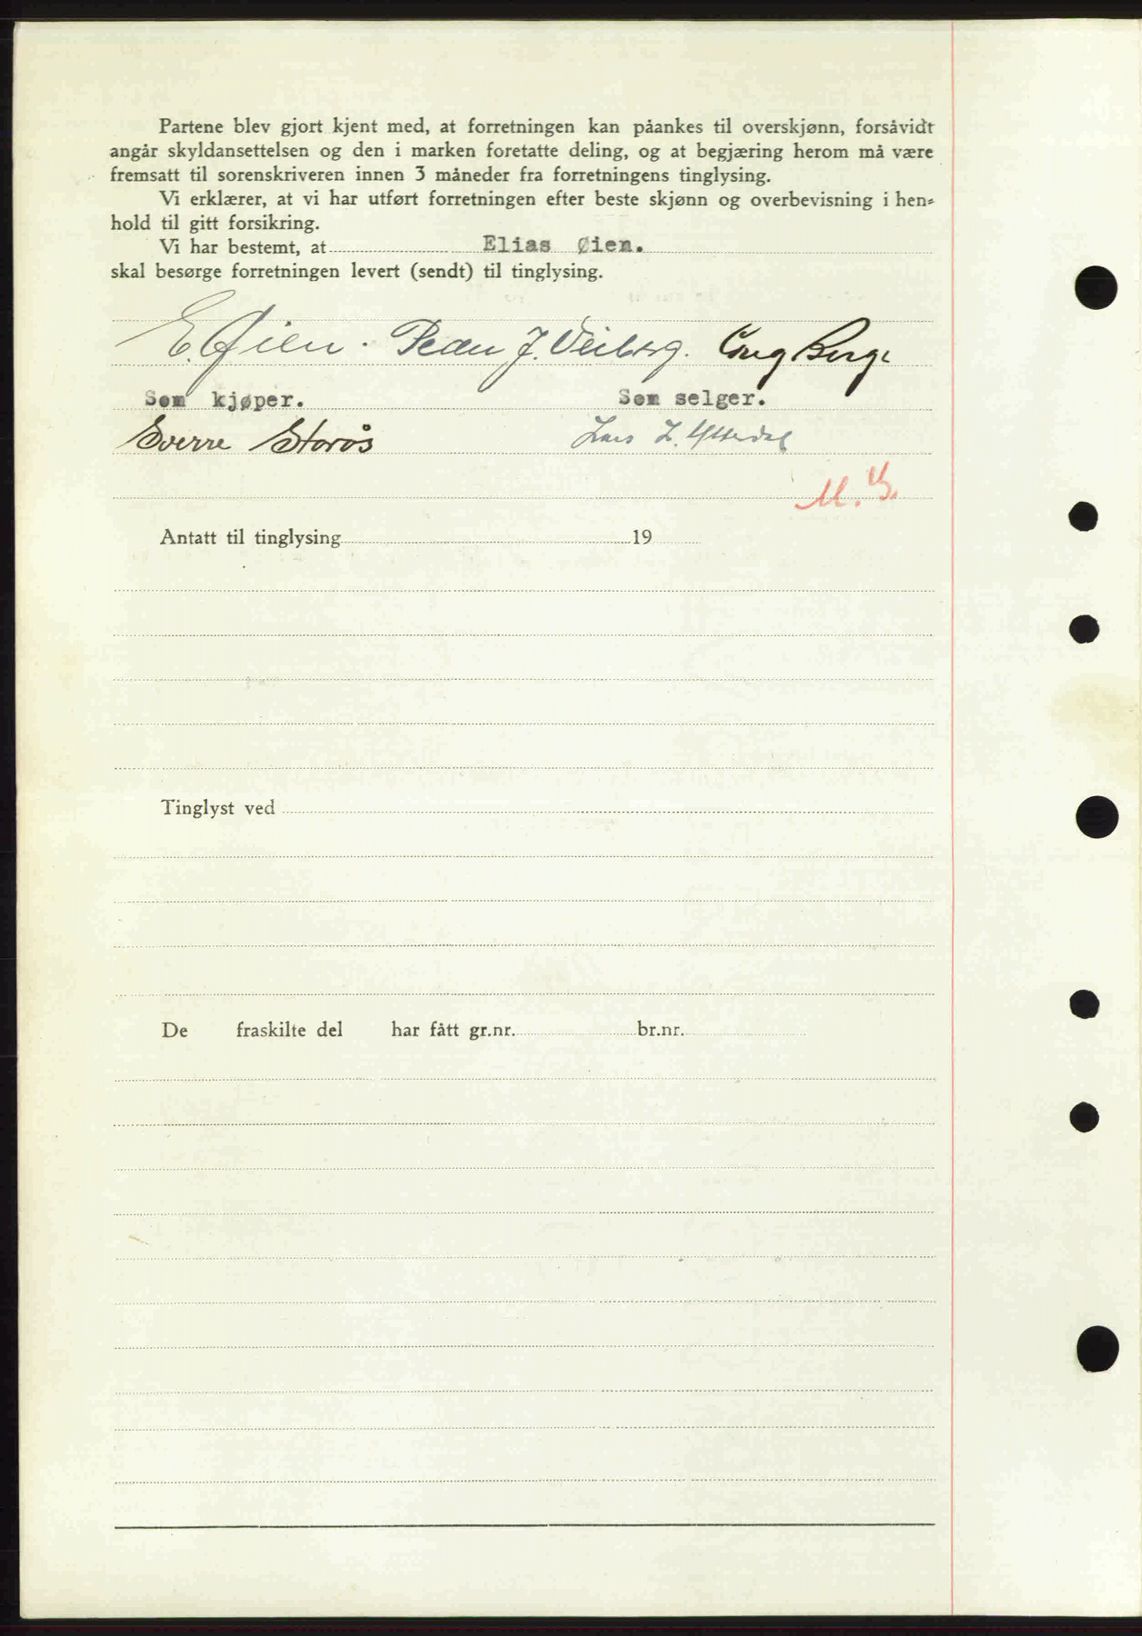 Partene blev gjort kjent med, at forretningen kan påankes til overskjønn, forsåvidt
angår skyldansettelsen og den i marken foretatte deling, og at begjæring herom må være
fremsatt til sorenskriveren innen 3 måneder fra forretningens tinglysing.
Vi erklærer, at vi har utført forretningen efter beste skjønn og overbevisning i hen-
hold til gitt forsikring.
Vi har bestemt, at Elias Øien.
skal besørge forretningen levert (sendt) til tinglysing.
E. Øien. Peder J. Veiberg. Berge
Som kjøper. Som selger.
Sverre Storøs Lars L. Ytterdal
M.B.
Antatt til tinglysing 19
Tinglyst ved
De fraskilte del har fått gr.nr. br.nr.